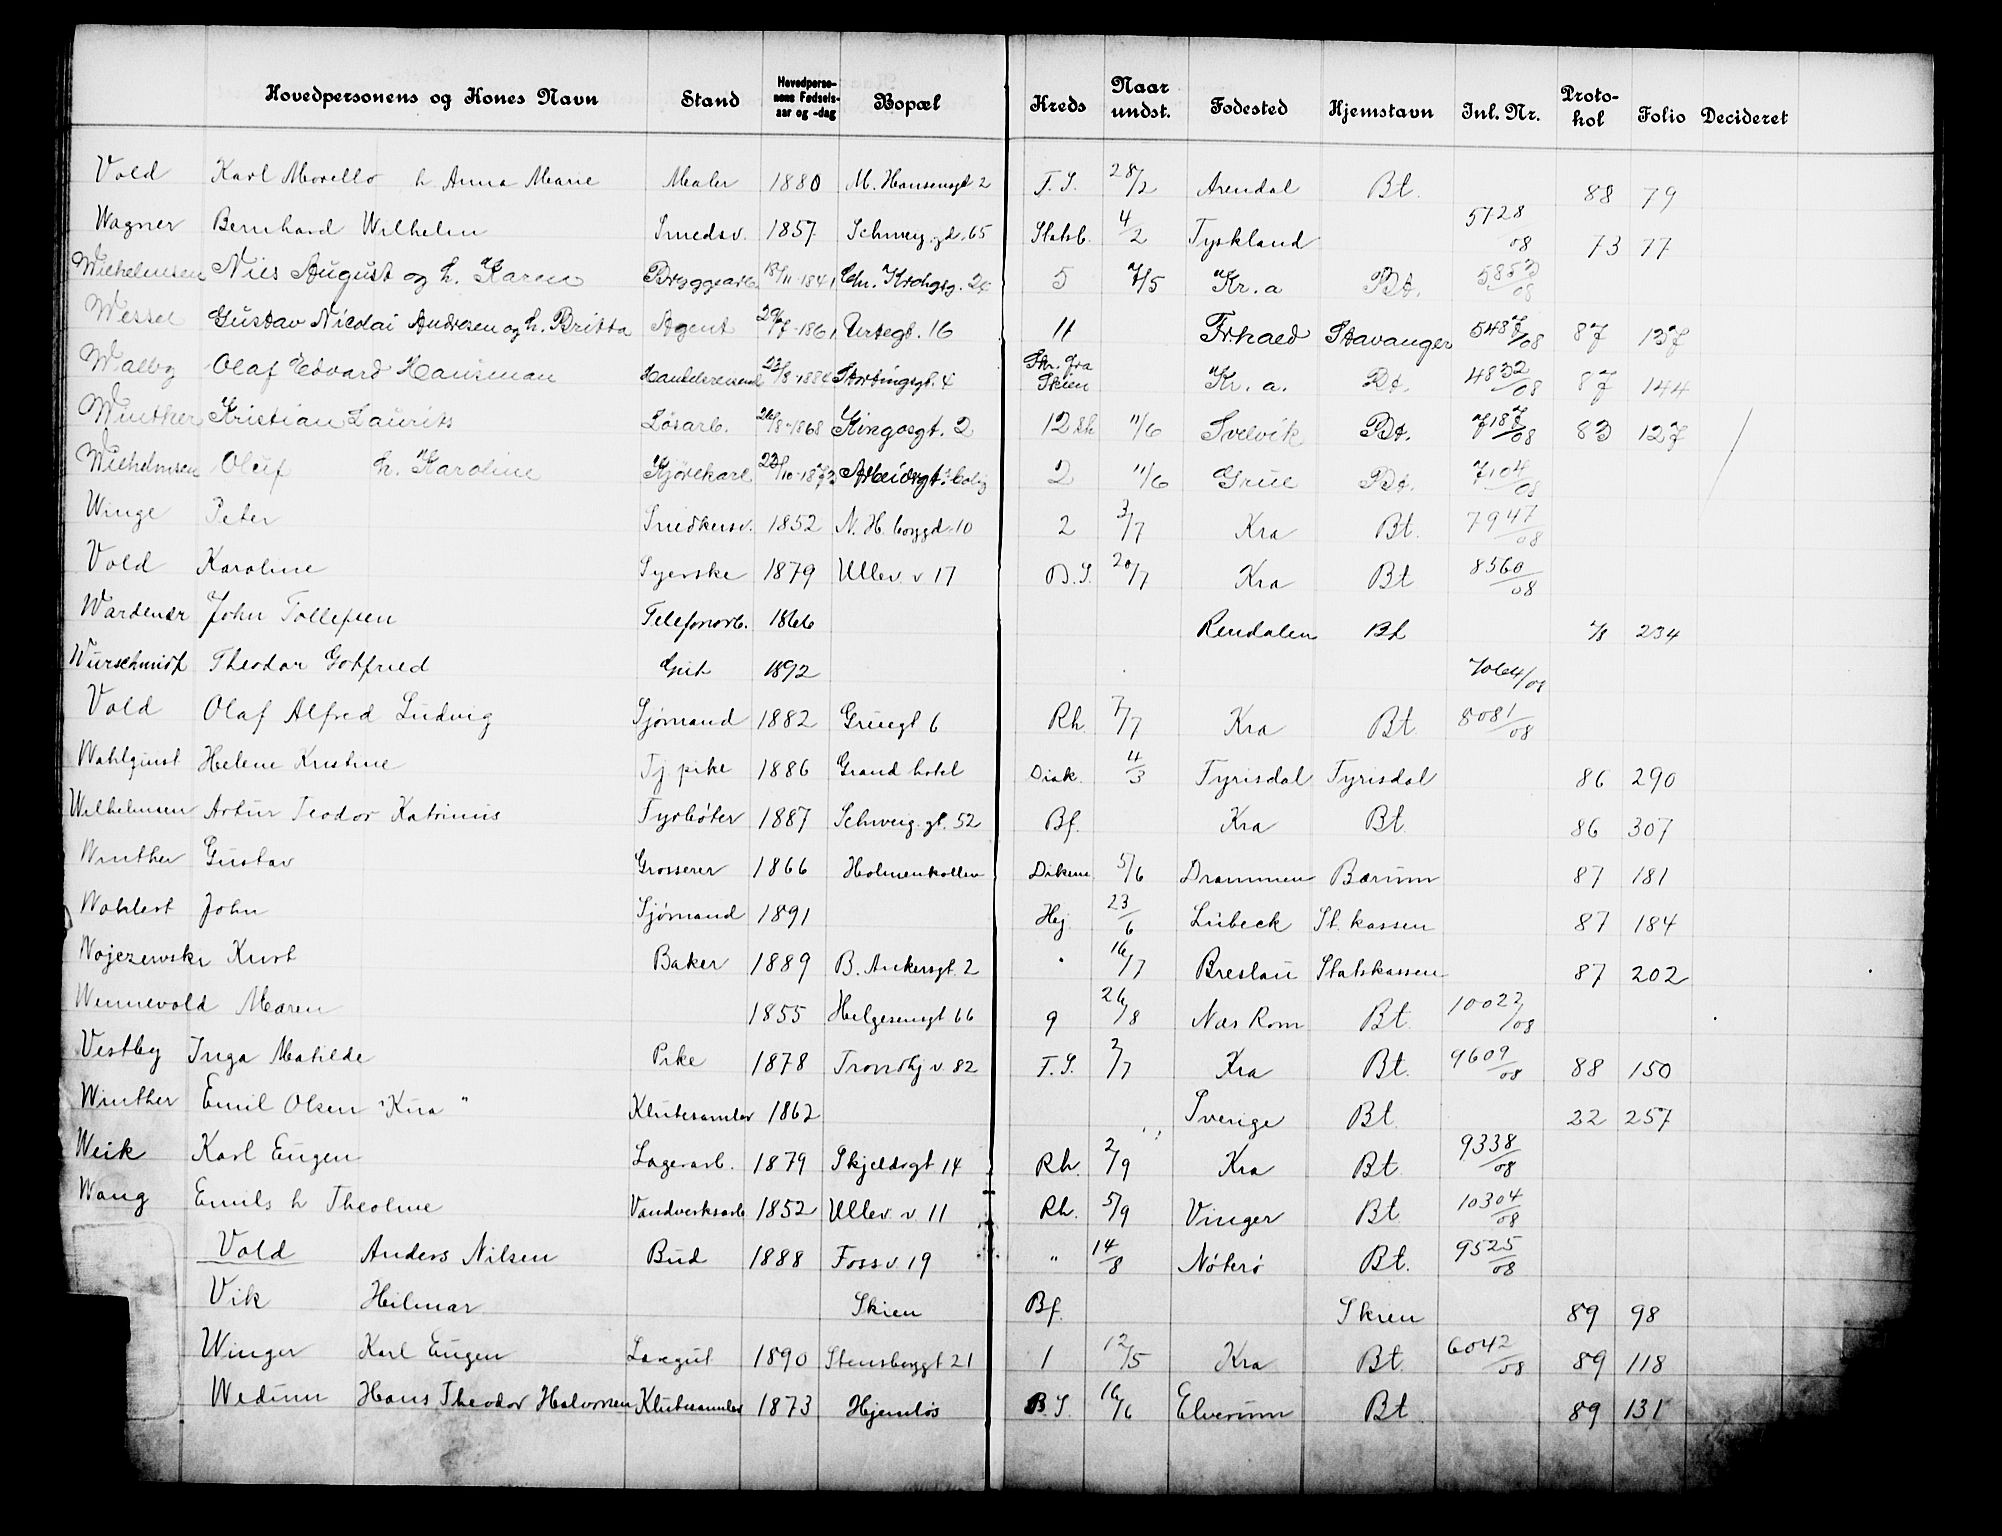 Hovedpersonens og Kones Navn Stand Hovedperso-nens Fødsels-aar og -dag Bopæl Kreds Naar undst. Fødested Hjemstavn Inl. Nr. Proto-kol Folio Decideret
Vold Karl Morello h Anna Marie Maler 1880 M. Hansensgt 2 T. S. 28/2 Arendal Bt. 88 79
Wagner Bernhard Wilhelm Smedsv. 1857 Schweig.gd. 65 Statsb. 4/2 Tyskland 5728/08 73 77
Wilhelmsen Nils August og h. Karen Bryggearb. 18/11-1841 Chr. Krohgsg. 24 5 7/5 Kr.a Bt. 5853/08
Wessel Gustav Nicolai Andresen og h. Britta Agent 29/7-1861 Urtegt. 16 11 Frhald Stavanger 5487/08 87 137
Walby Olaf Edvard Hausman Handelsreisend 23/8-1884 Stortingsgt. 4 Skr. fra Skien Kr. a. Bt. 4832/08 87 144
Winther Kristian Laurits Løsarb. 26/8-1868 Kingosgt. 2 12 Rh 11/6 Svelvik Bt. 7187/08 83 127
Wilhelmsen Oluf h. Karoline Kjørekarl 23/10-1873 Arbeidsgt. bolig 2 11/6 Grue Bt. 7104/08
Winge Peter Snedkersv. 1852 N. H. byggd. 10 2 3/7 Kra Bt. 7947/08
Vold Karoline Syerske 1879 Ullev. v 17 B. S. 20/7 Kra Bt 8560/08
Wardenær John Tollefsen Telefonarb. 1866 Rendalen Bt 4/8 234
Würschmidt Theodor Gotfried Gut 1892 7064/08
Vold Olaf Alfred Ludvig Sjømand 1882 Gruegt 6 Rh. 7/7 Kra Bt. 8081/08
Wahlquist Helene Kristine Tj pike 1886 Grand hotel Diak. 4/3 Tyrisdal Tyrisdal 86 290
Wilhelmsen Artur Teodor Katrinus Fyrbøter 1887 Schweig. gt. 52 Bf. Kra Bt. 86 307
Winther Gustav Grosserer 1866 Holmenkollen Dikem 5/6 Drammen Bærum 87 181
Wohlert John Sjømand 1891 Hej 23/6 Lübeck St. kassen 87 184
Wojezewski Kurt Baker 1889 B. Ankersgt. 2 " 16/7 Breslau Statskassen 87 202
Wennevold Maren 1855 Helgesensgt 66 9 26/8 Næs Rom Bt. 10022/08
Vestby Inga Matilde Pike 1878 Trondhj v. 82 T. S. 2/7 Kra Bt. 9609/08 88 150
Winther Emil Olsen "Kua" Klutesamler 1862 Sverige Bt. 22 257
Weik Karl Eugen Lagerarb. 1879 Skjeldsgt 14 Rh. 2/9 Kra Bt. 9338/08
Wang Emils h Theoline Vandverksarb. 1852 Ullev. v. 11 Rh. 5/9 Vinger Bt 10304/08
Vold Anders Nilsen Bud 1888 Foss v 19 " 14/8 Nøterø Bt. 9525/08
Vik Heilmar Skien Bf. Skien 89 98
Winger Karl Eugen Løsgut 1890 Stensberggt 21 1 12/5 Kra Bt. 6042/08 89 118
Wedum Hans Theodor Halvorsen Klutesamler 1873 Hjemløs B. S. 16/6 Elverum Bt 89 131